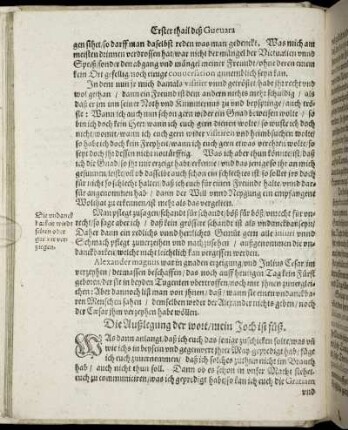 Erster thail deß Gueuara
gen sihet, so darff man daselbst reden was man gedenckt. Was mich am
meisten so drinnen verdrossen hat war nicht der mängel der Victualien vnnd
Speiß sonder der abgang vnd mängel meiner Freunde / ohne deren
kein Ort gefellig noch einige conuersation annemblich seyn kan.
In dem nun jr mich damals visitirt vnnd getröstet habt jhr recht vnd
wol gethan / dann ein Freund ist dem andern nichts mehr schuldig / als
daß er jm inn seiner Noth vnd Kummernus zu vnd beyspringe / auch tröste
Wann ich auch nun schon gern wolt ein Gnad beweisen wolte / so
bin ich doch kein Herr wann ich euch gern dienen wolte / so wuste ich doch
nicht womit wann ich euch gern wider visitiren vnd heimbsuchen wolte /
so hab ich doch kein Freyheit / wann ich euch gern etwas verehren wolte / so
seyt doch jhr dessen nicht notdürfftig. Was ich aber thun könne ist, daß
ich die Gnad so jhr mir erzeigt habt erkenne / vnd das jenig so jhr an mich
gesunnen
nur nicht so schlecht halten: daß ich euch für einen Freund halte vnnd darfür
angenommen hab / dann der Will vnnd Neygung ein empfangene
Wolthat zu erkennen, ist mehr als das vergelten.
Man pflegt zusagen schandt für schandt böß für böß
Daher dann ein redlich vnd ehrliches Gemüt gern alle iniurien vnnd
Schmach pflegt zuuerzeihen vnd nachzusehen / außgenommen die vndanckbarkeit
welche nicht leichtlich kan vergessen werden.
Alexander magnus war in gnaden erzeigung vnd Julius Cæsar im
verzeyhen / dermassen beschaffen / das noch auff heutigen Tag kein Fürst
geboren / der sie beyden Tugenten vbertroffen noch mit jhnen zuuergleichen
Aber dannoch list man von jhnen / daß / wann sie einen vndanckbaren
Menschen sahen / demselben weder der Alexander nichts geben / noch
der Cæsar jhm verzeyhen habe wöllen.
Die Außlegung der wort / mein Joch ist süß.
WAs dann anlangt, daß ich euch das jenige zuschicken solte, was vñ
wie ichs in beysein vnd gegenwert jhrer May. gepredigt hab: füge
ich euch zuuernemmen / daß ich solches zuthun nicht im Brauch
hab / auch nicht thun soll. Dann ob es schon in vnser Macht stehet
euch zu communiciren / was ich gepredigt habe, so kan ich euch die Gratiam
vnd